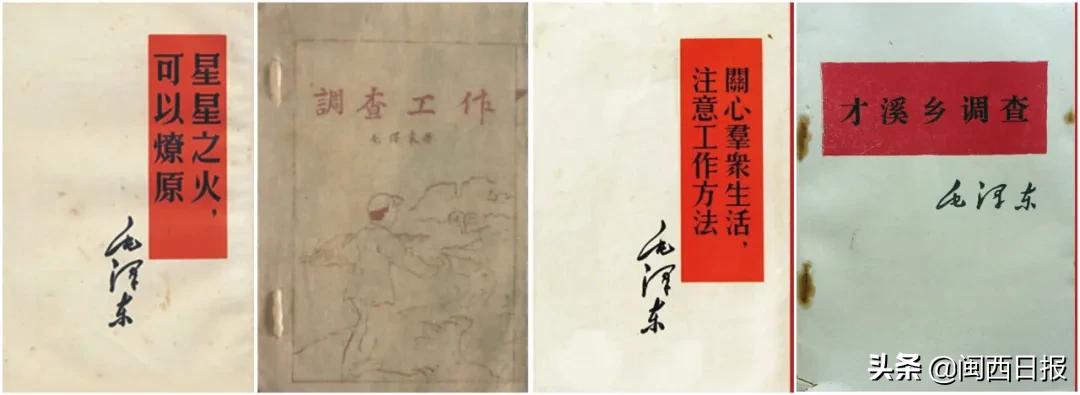 星星之火，
可以燎原
毛泽东
調查工作
毛澤東著
關心羣衆生活，
注意工作方法
毛泽东
才溪乡调查
毛泽东
头条 @闽西日报